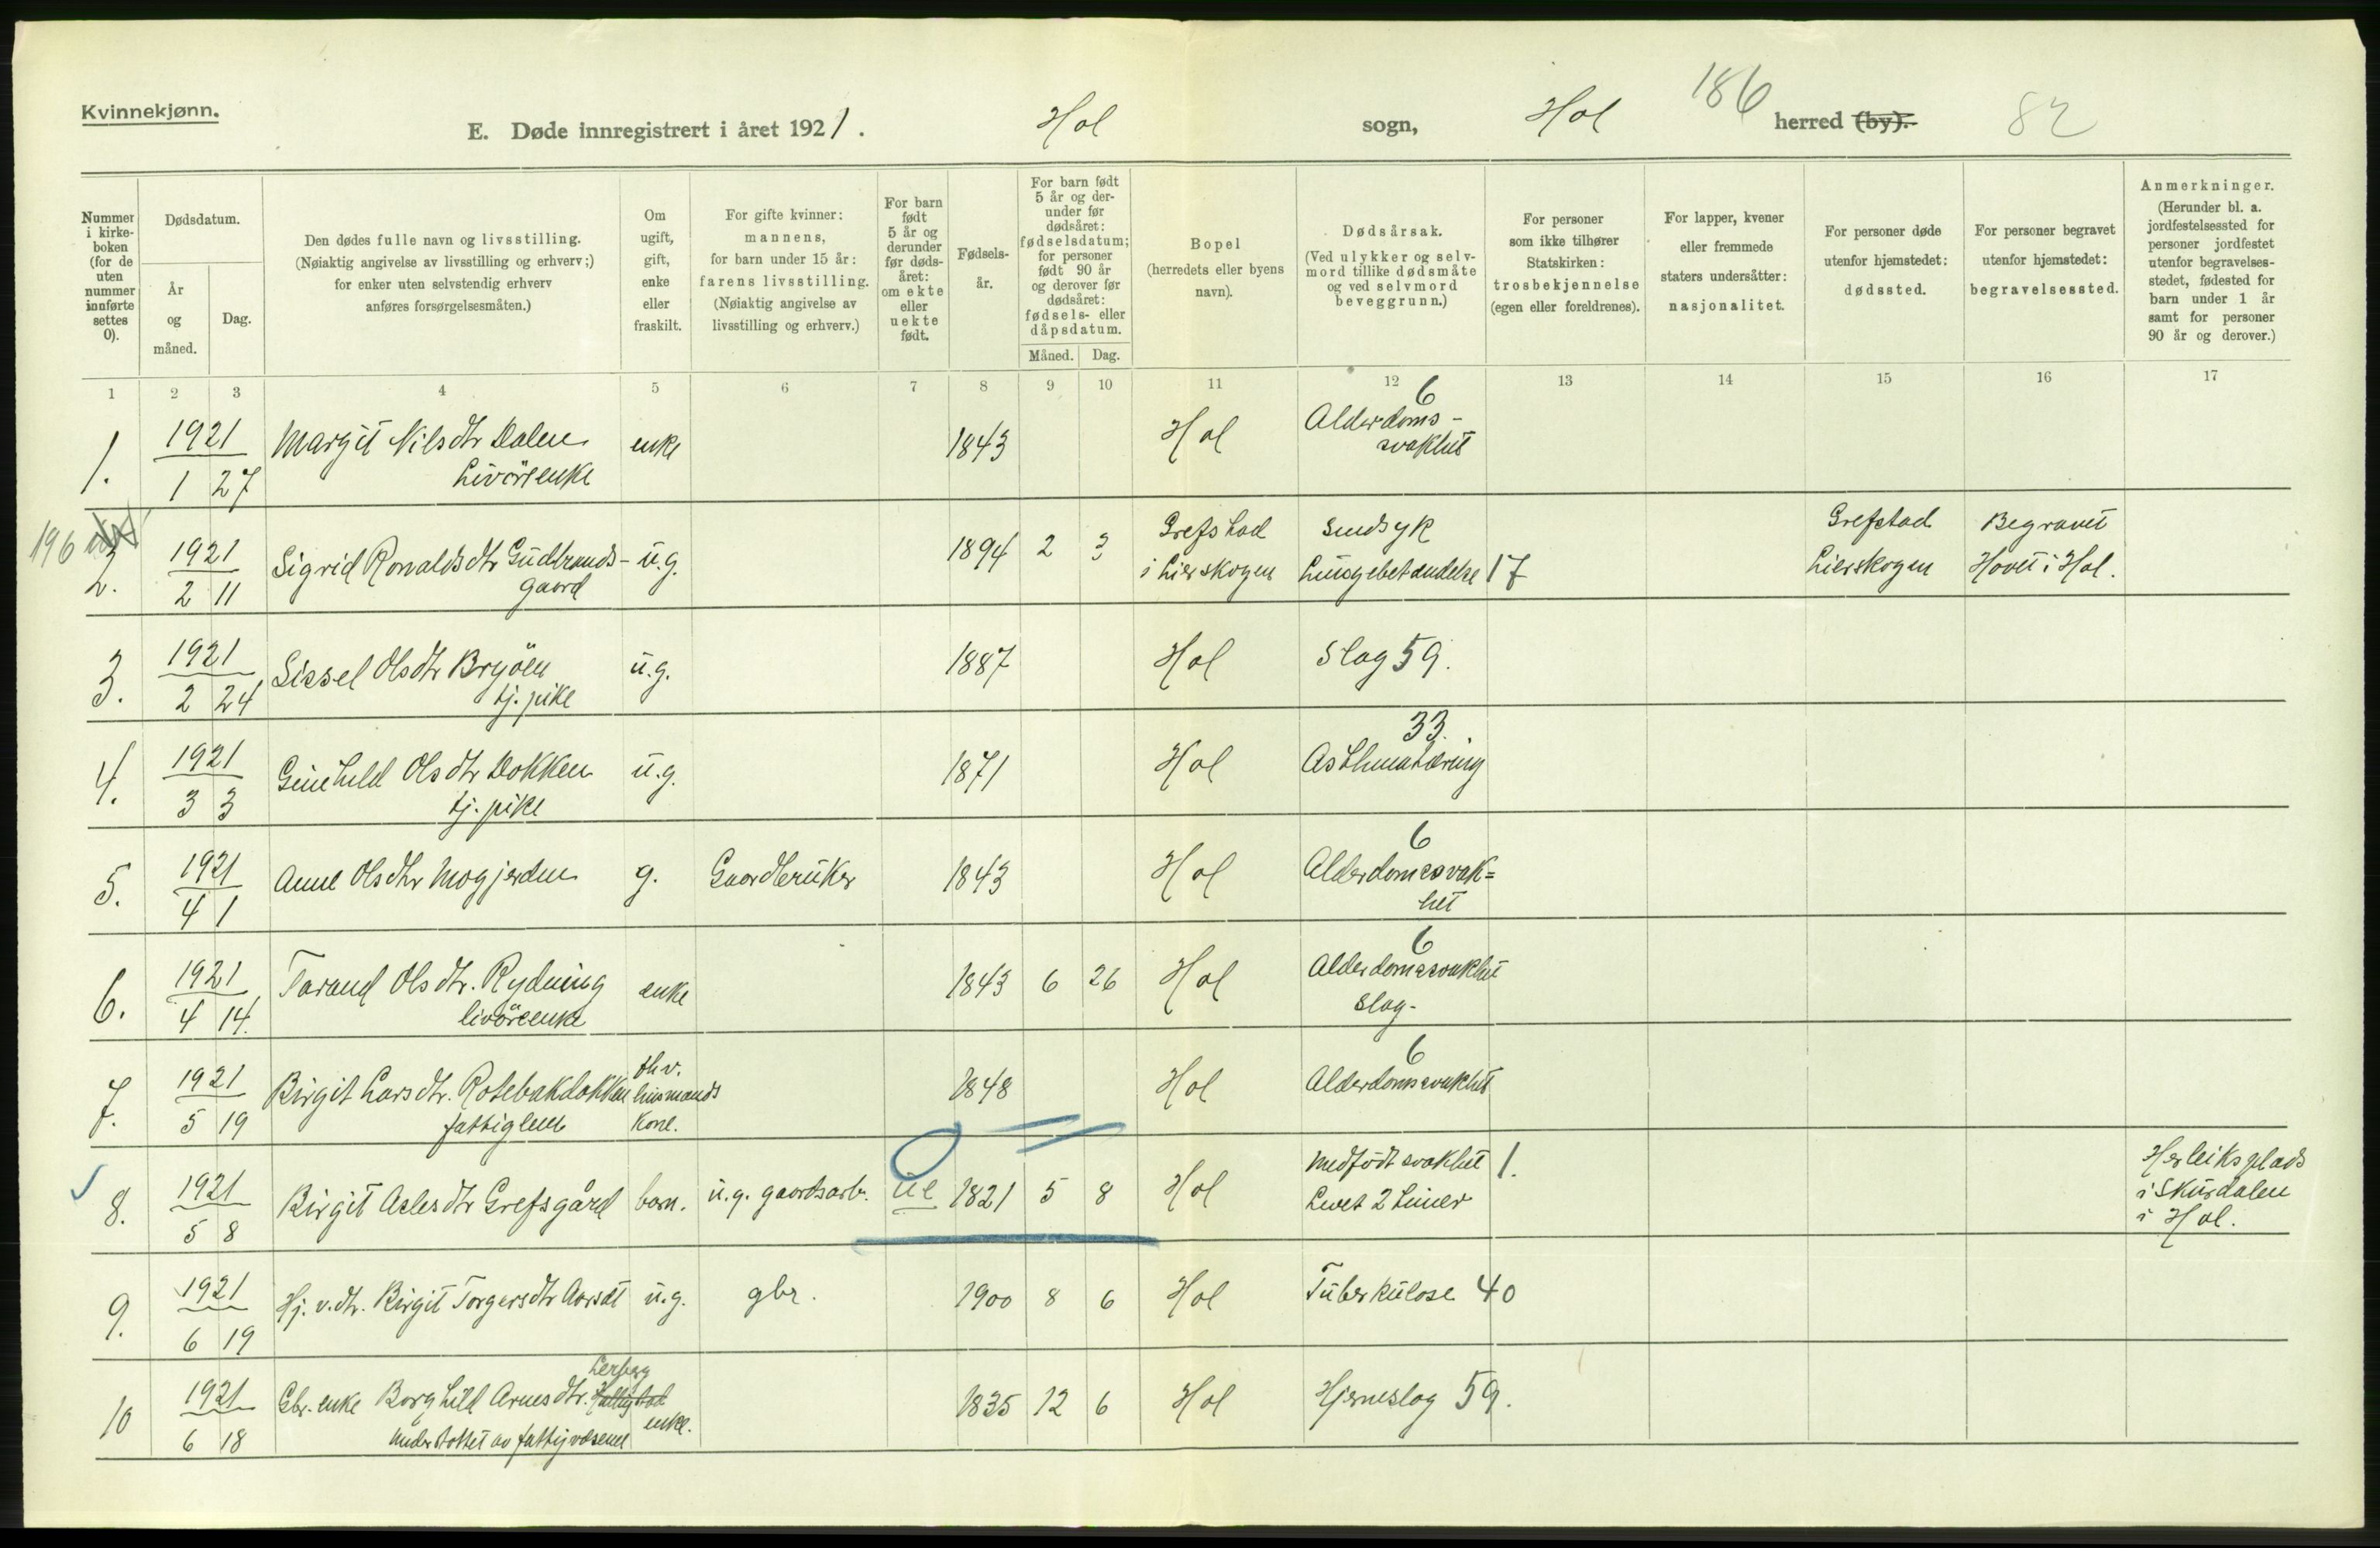 Kvinnekjønn.
E. Døde innregistrert i året 1921. Hol sogn, Hol herred (by).
186
82
Nummer i kirke-boken (for de uten nummer innførte settes 0).
Dødsdatum.
År og måned.
Dag.
Den dødes fulle navn og livsstilling.
(Nøiaktig angivelse av livsstilling og erhverv;)
for enker uten selvstendig erhverv
anføres forsørgelsesmåten.)
Om ugift, gift, enke eller fraskilt.
For gifte kvinner:
mannens,
for barn under 15 år:
farens livsstilling.
(Nøiaktig angivelse av
livsstilling og erhverv.)
For barn født 5 år og derunder før døds-året: om ekte eller uekte født.
Fødsels-år.
For barn født 5 år og der-under før dødsåret: fødselsdatum; for personer født 90 år og derover før dødsåret: fødsels- eller dåpsdatum.
Måned.
Dag.
Bopel
(herredets eller byens
navn).
Dødsårsak.
(Ved ulykker og selv-
mord tillike dødsmåte
og ved selvmord
beveggrunn.)
For personer
som ikke tilhører
Statskirken:
trosbekjennelse
(egen eller foreldrenes).
For lapper, kvener
eller fremmede
staters undersåtter:
nasjonalitet.
For personer døde
utenfor hjemstedet:
dødssted.
For personer begravet
utenfor hjemstedet:
begravelsessted.
Anmerkninger.
(Herunder bl. a.
jordfestelsessted for
personer jordfestet
utenfor begravelses-
stedet, fødested for
barn under 1 år
samt for personer
90 år og derover.)
1 2 3 4 5 6 7 8 9 10 11 12 13 14 15 16 17
1. 1921 1 27 Margit Nilsdtr Dalen enke 1843 Hol 6 Alderdoms-
Livöreenke svakhet
196
2. 1921 2 11 Sigrid Ronaldsdtr Gudbrands- u.g. 1894 2 3 Grefstad Sindsyk Grefstad Begravet
gaard i Lierskogen Lungebetændelse 17 Lierskogen Hovet i Hol.
3. 1921 2 24 Sissel Olsdtr Bryöen u.g. 1887 Hol Slag 59.
tj. pike
4. 1921 3 3 Gunhild Olsdtr Dokken u.g. 1871 Hol 33. Asthma
tj. pike
5. 1921 4 1 Anne Olsdtr Mogjerden g. Gaardbruker 1843 Hol 6 Alderdomssvak=
het
6. 1921 4 14. Tarand Olsdtr. Rydning enke 1843 6 26 Hol 6 Alderdomssvakhet
livöreenke Slag-
7. 1921 5 19 Birgit Larsdtr. Rotebakdokken fhv. husmands kone. 1848 Hol 6 Alderdomssvakhet
fattiglem
8. 1921 5 8 Birgit Aslesdtr Grefsgård barn. u.g. gaardsarb. ue 1821 5 8 Hol Medfödt svakhet 1. Herleiksplads
Levet 2 timer i Skurdalen
i Hol.
9. 1921 6 19 Hj. v. dtr. Birgit Torgersdtr Aarset u.g. gbr. 1900 8 6 Hol Tüberkülose 40
10 1921 6 18 Gbr. enke Borghild Arnesdtr. enke. 1835 12 6 Hol Hjerneslag 59.
understottet av fattigvæsenet